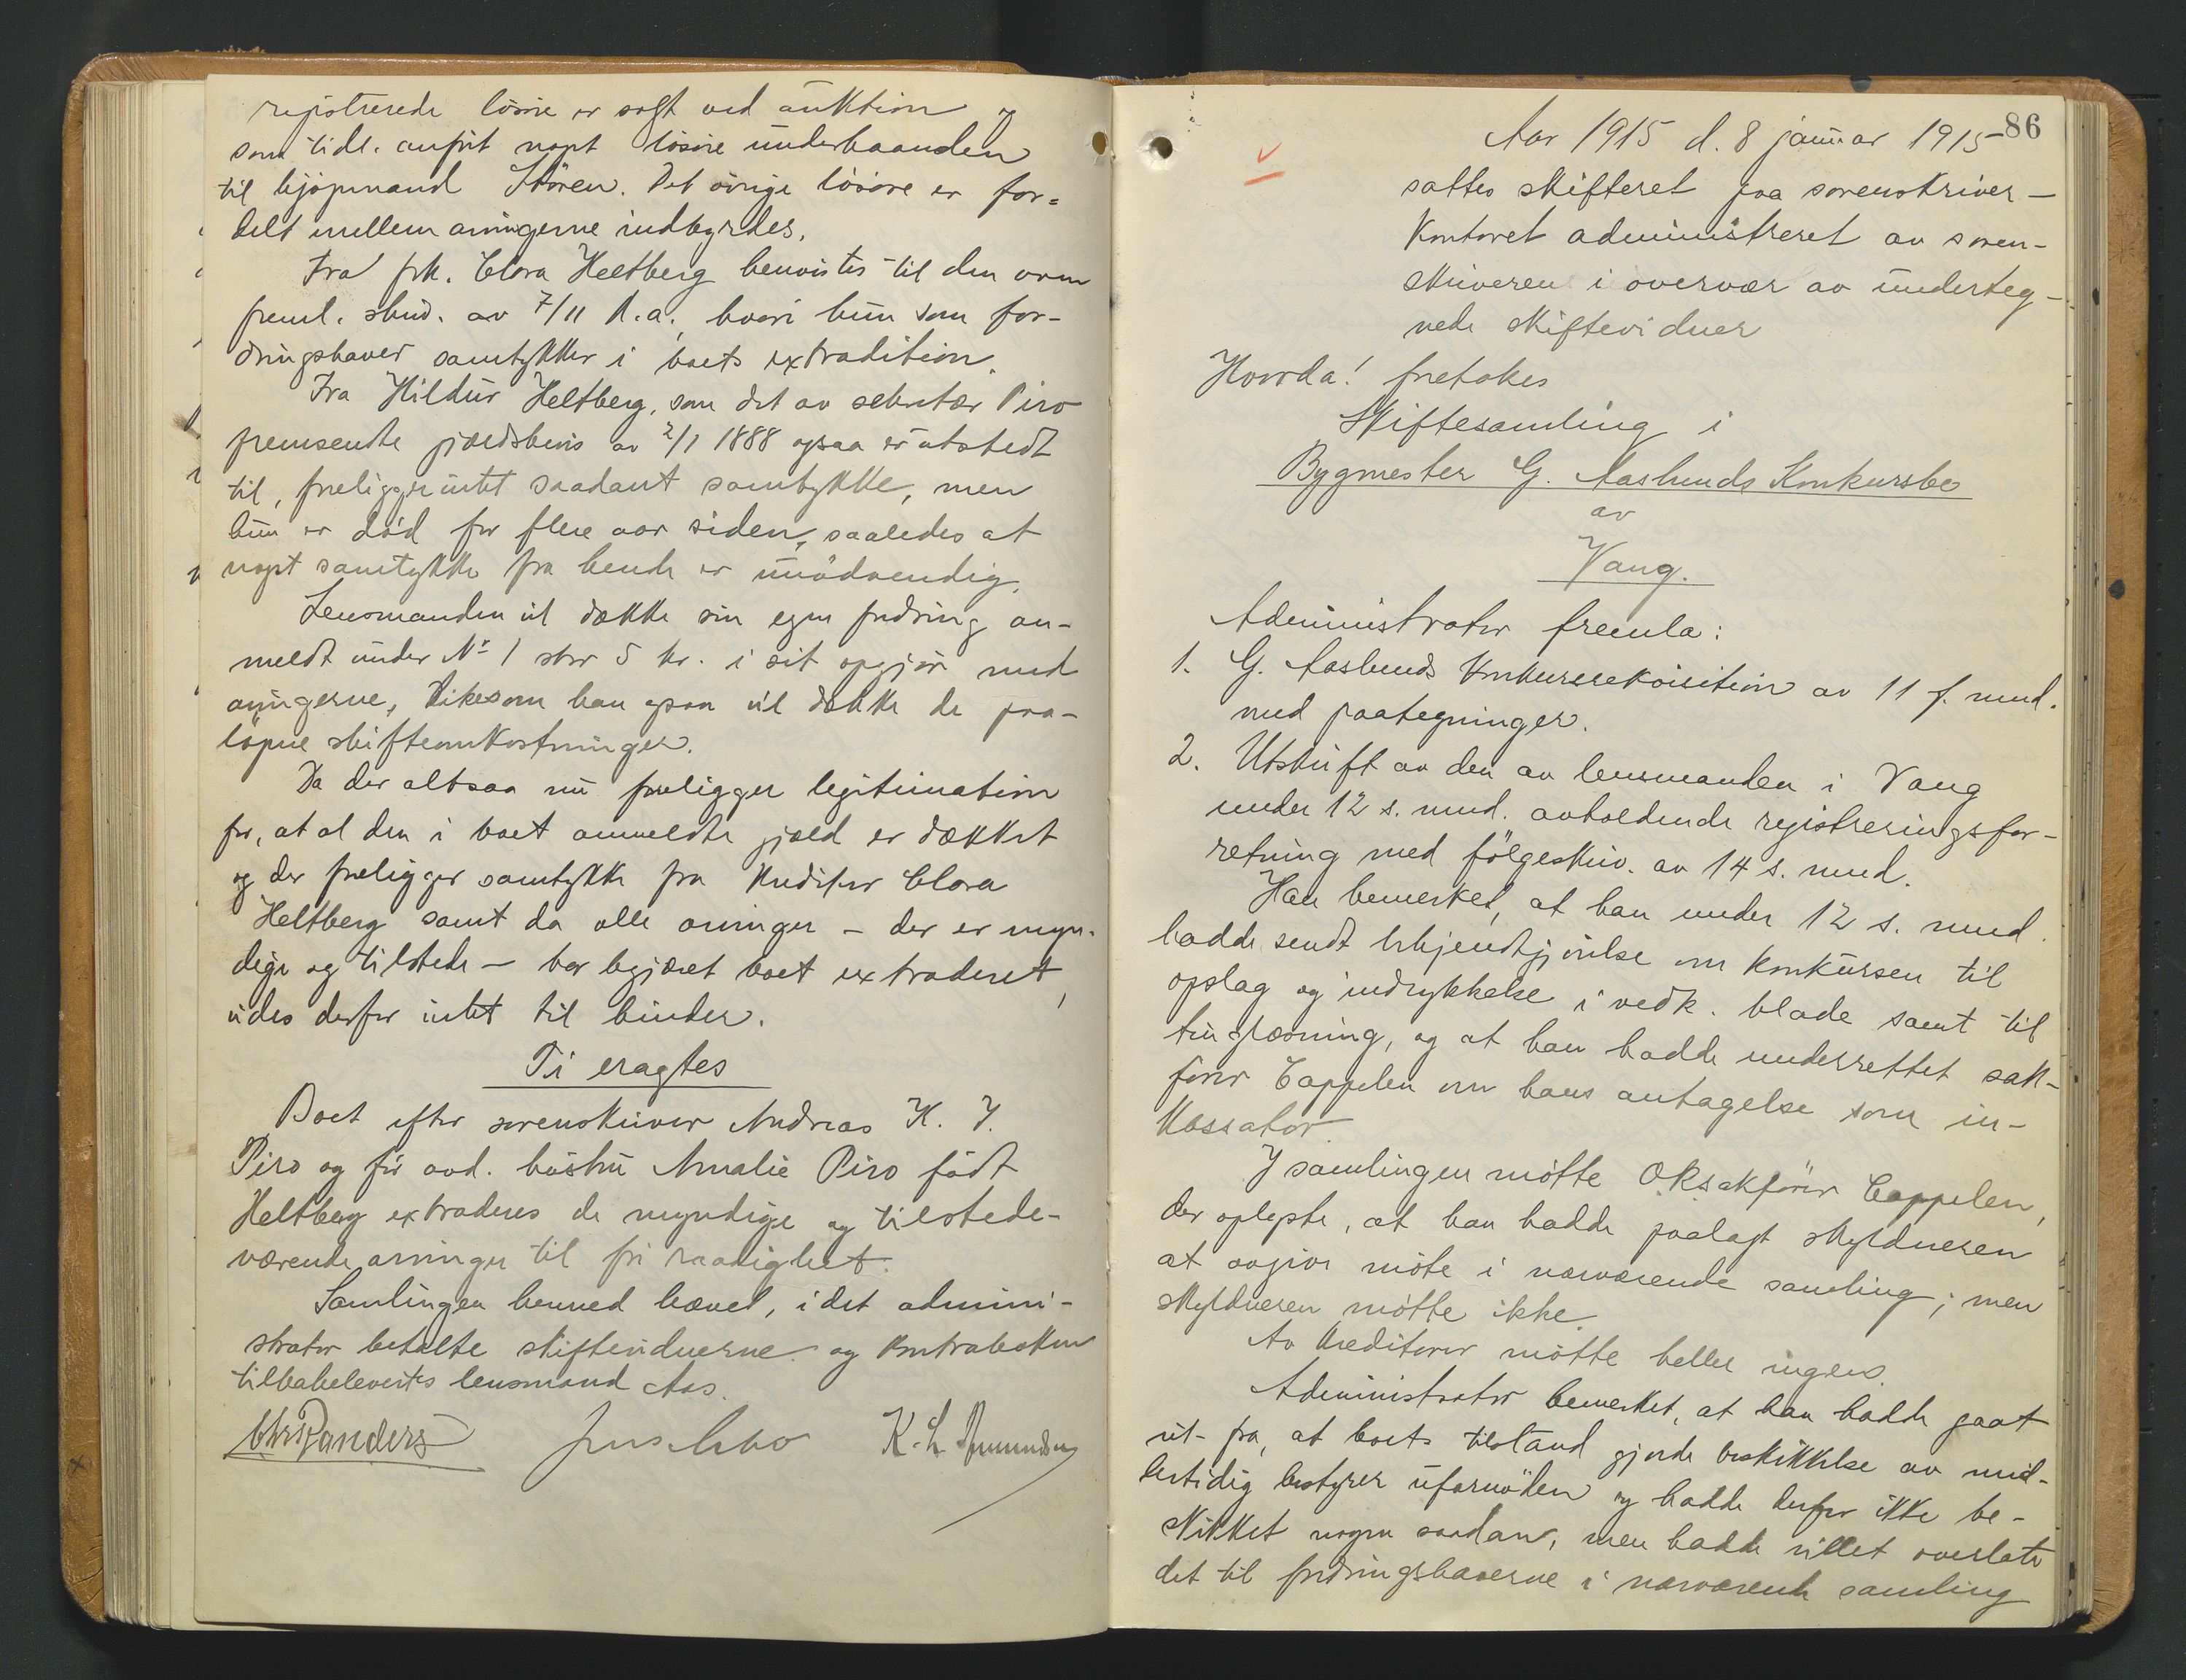 registrerede lösöre er solgt ved auktion og
som tidl. anfört nogst lösöre underhaanden
til kjöpmand Stören. Det övrige lösöre er for=
delt mellem arvingerne indbyrdes.
Fra frk. Clara Heltberg henvistes til den oven
freml. skriv. av 7/11 f.a., hvori hun som for-
dringshaver samtykker i boets extradition.
Fra Hildur Heltberg, som det av sekretær Piro
fremsendte gjældsbevis av 2/1 1888 ogsaa er utstedt
til, foreligger intet saadant samtykke, men
hun er död for flere aar siden, saaledes at
nogst samtykke fra hende er unödvendig.
Lensmanden vil dække sin egen fordring an-
meldt under No 1 stor 5 kr. i sit opgjör med
arvingerne, likesom han ogsaa vil dække de paa-
löpne skifteomkostninger.
Da der altsaa nu foreligger legitimation
for, at al den i boet anmeldte gjæld er dækket
og der foreligger samtykke fra kreditor Clara
Heltberg samt da alle arvinger – der er myn-
dige og tilstede – har begjæret boet extraderet,
vides derfor intet til hinder.
Ti eragtes
Boet efter sorenskriver Andreas K. J.
Piro og för avd. hustru Amalie Piro födt
Heltberg extraderes de myndige og tilstede-
værende arvinger til fri raadighet.
Samlingen hermed hævet, idet admini-
strator betalte skiftevidnerne og kontraboken
tilbakelevertes lensmand Aas.
Chr Randers Jens Aabo K. L. Amundsen
86
Aar 1915 d. 8 januar 1915
sattes skifteret paa sorenskriver-
kontoret administreret av soren-
skriveren i overvær av underteg-
nede skiftevidner
Hvorda! foretokes
Skiftesamling i
Bygmester G. Aaslunds Konkursbo
av
Vang.
Administrator fremla:
1. G. Aaslunds konkursrekvisition av 11 f. mnd.
med paategninger.
2. Utskrift av den av lensmanden i Vang
under 12 s. mnd. avholdende registreringsfor-
retning med fölgeskriv. av 14 s. mnd.
Han bemerket, at han under 12 s. mnd.
hadde sendt bekjendtgjörelse om konkursen til
opslag og indrykkelse i vedk. blade samt til
tinglæsning, og at han hadde underrettet sak-
förer Cappelen om hans antagelse som in-
kassator.
I samlingen mötte O.R.sakförer Cappelen,
der oplyste, at han hadde paalagt skyldneren
at avgive möte i nærværende samling; men
skyldneren mötte ikke.
Av kreditorer mötte heller ingen.
Administrator bemerket, at han hadde gaat
ut fra, at boets tilstand gjorde beskikkelse av mid-
lertidig bestyrer ufornöden og hadde derfor ikke be-
skikket nogen saadan, men hadde villet overlate
det til fordringshaverne i nærværende samling